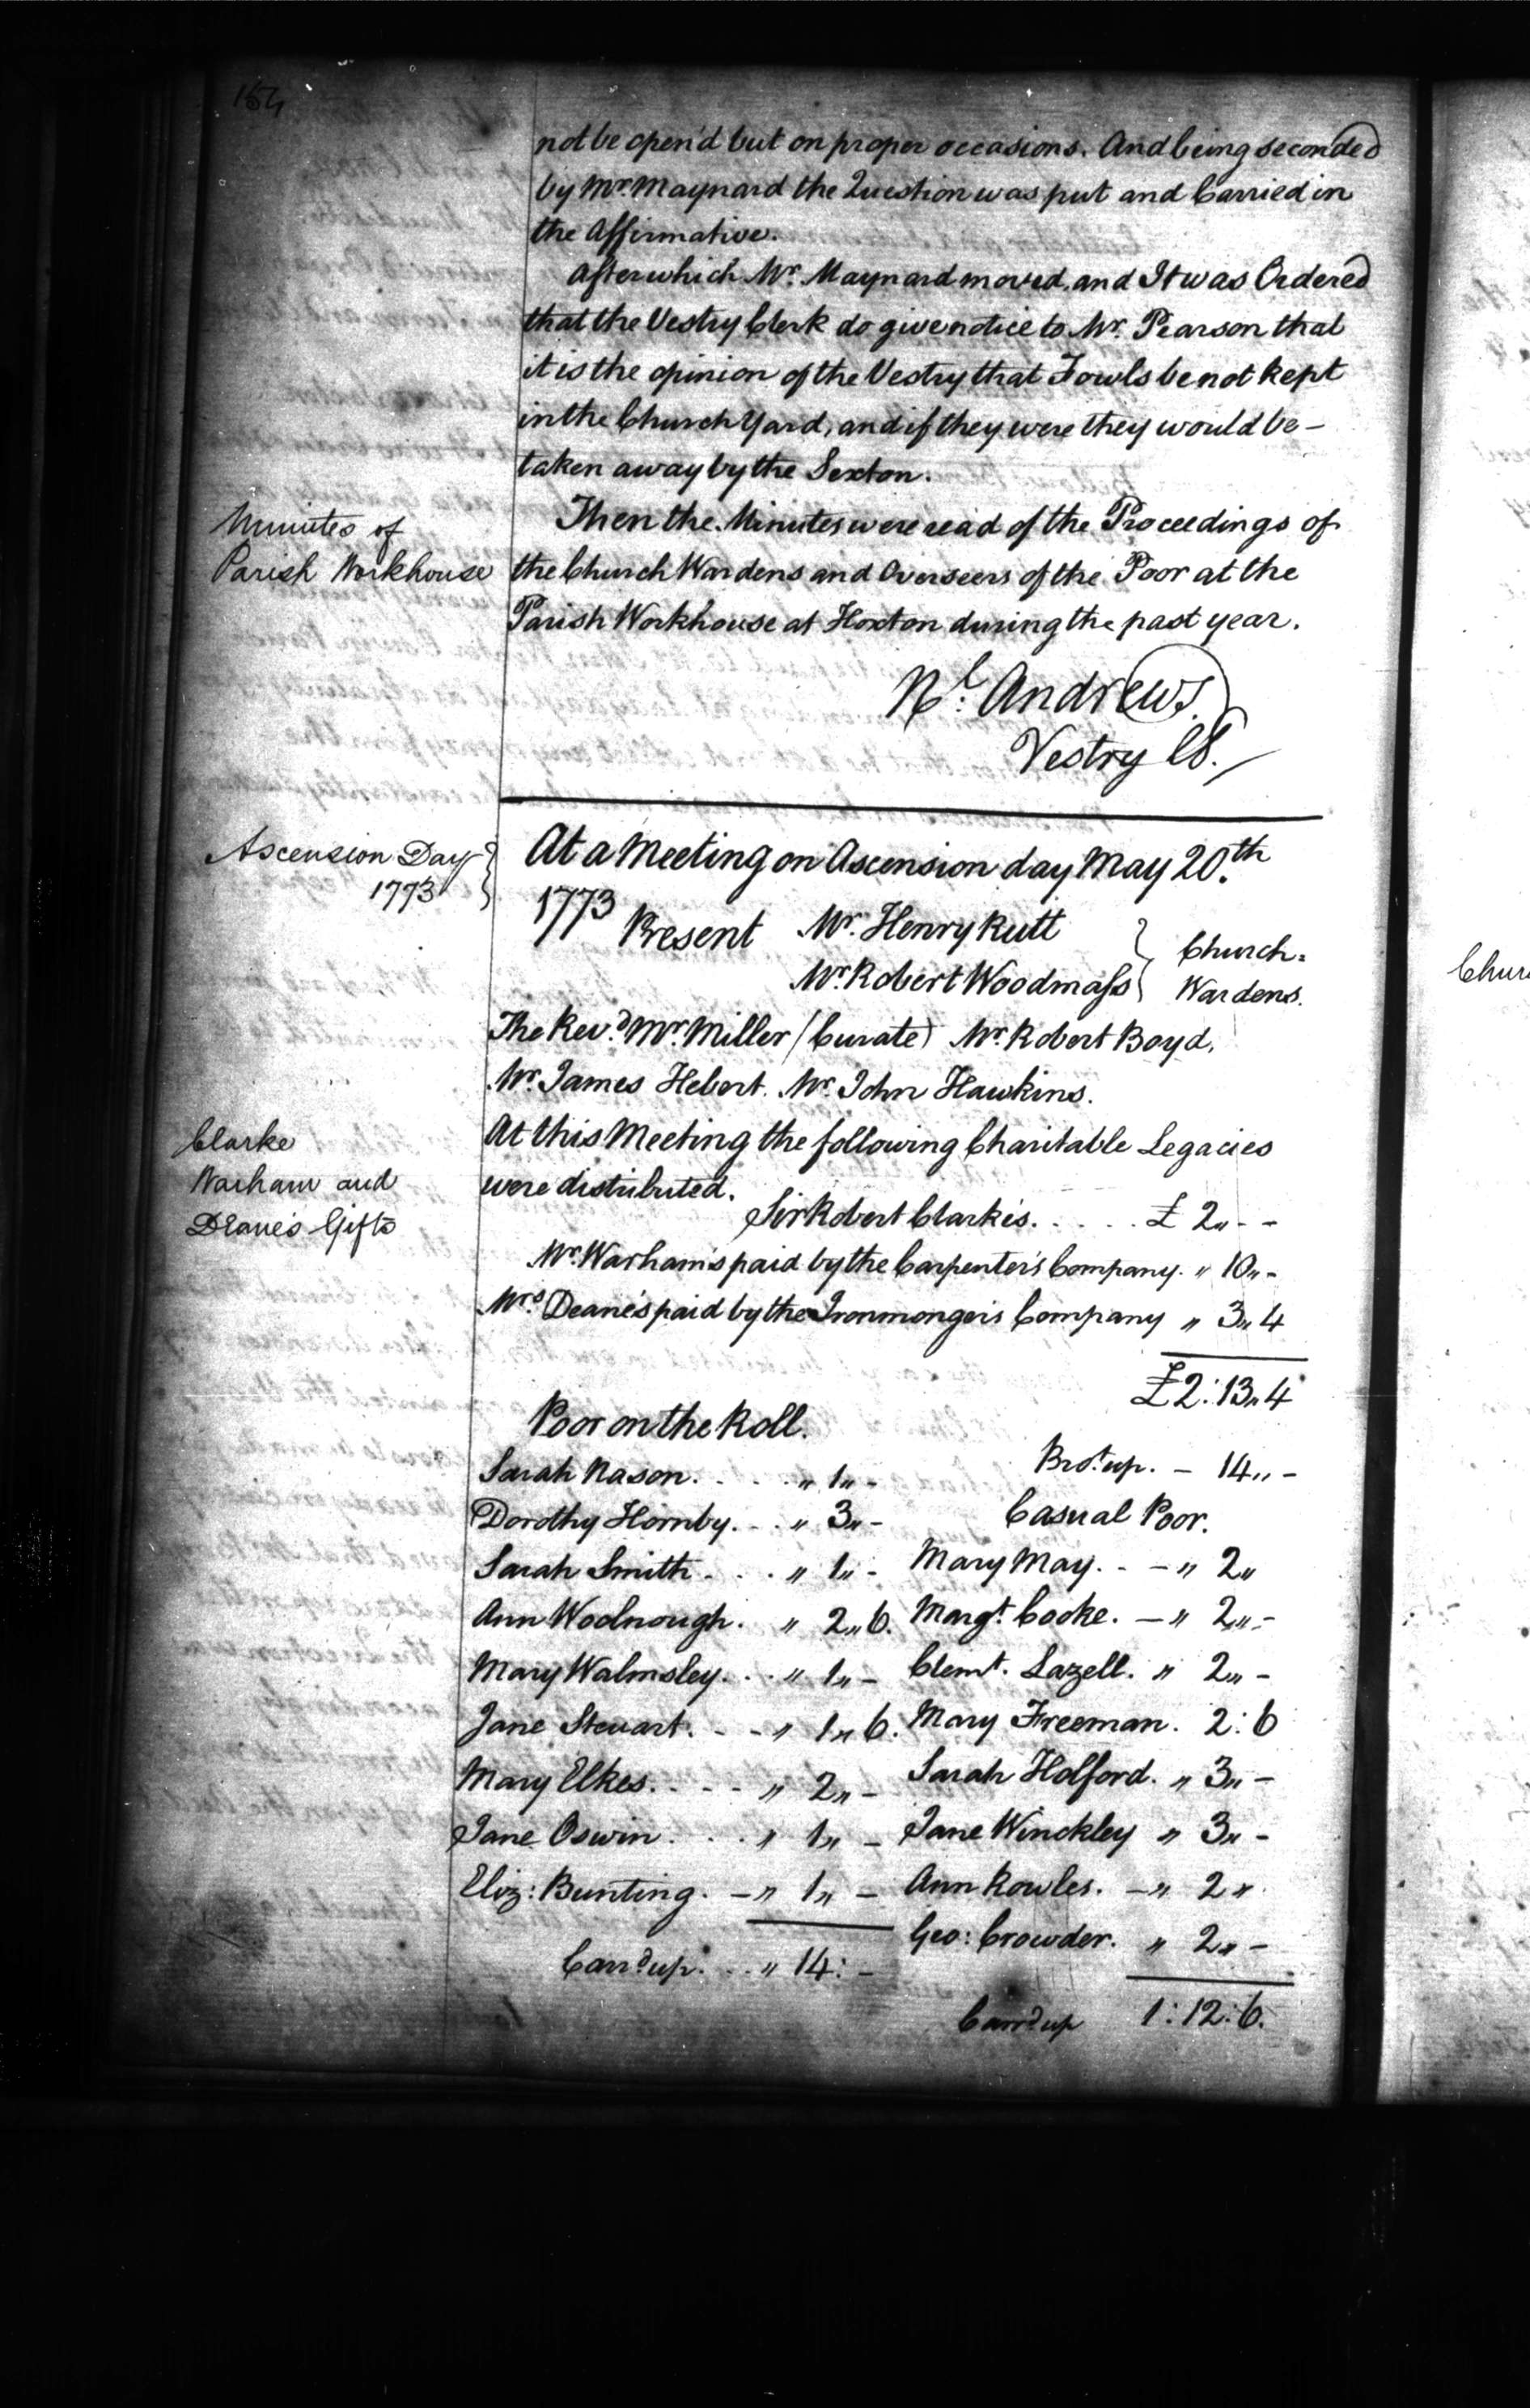 164
not be open'd but on proper occasions. And being seconded
by Mr. Maynard the Question was put and Carried in
the Affirmative.
After which Mr. Maynard moved, and It was Ordered
that the Vestry Clerk do give notice to Mr. Pearson that
it is the opinion of the Vestry that Fowls be not kept
in the Church Yard, and if they were they would be -
taken away by the Sexton.
Minutes of
Parish Workhouse
Then the Minutes were read of the Proceedings of
the Church Wardens and Overseers of the Poor at the
Parish Workhouse at Hoxton during the past year.
Nl. Andrews
Vestry Cl.
Ascension Day
1773
At a Meeting on Ascension day May 20.th
1773
Present Mr. Henry Rutt
Mr. Robert Woodmass
Church=
Wardens.
The Rev.d Mr. Miller (Curate) Mr. Robert Boyd,
Mr. James Hebert. Mr. John Hawkins.
Clarke
Warham and
Deane's Gifts
At this Meeting the following Charitable Legacies
were distributed.
Sir Robert Clarke's. . . . . £ 2 „ - -
Mr. Warham's paid by the Carpenter's Company. „ 10 „ -
Mrs. Deane's paid by the Ironmonger's Company „ 3 „ 4
£2 : 13 „ 4
Poor on the Roll.
Sarah Nason. . . . „ 1 „ -
Dorothy Hornby. . . „ 3 „ -
Sarah Smith . . . „ 1 „ -
Ann Woolnough. „ 2 „ 6.
Mary Walmsley. . . „ 1 „ -
Jane Stewart. - - „ 1 „ 6.
Mary Elkes. . . - - „ 2 „ -
Jane Oswin. . . . „ 1 „ -
Eliz: Bunting. - „ 1 „ -
Carrd up. . . „ 14 : -
Brot. up. - 14 „ -
Casual Poor.
Mary May. - - „ 2 „
Margt. Cooke. - „ 2 „ -
Clemt. Lazell. „ 2 „ -
Mary Freeman. 2 : 6
Sarah Holford. „ 3 „ -
Jane Winckley „ 3 „ -
Ann Rowles. - „ 2 „
Geo: Crowder. „ 2 „ -
Carrd up 1 : 12 : 6.
Chur